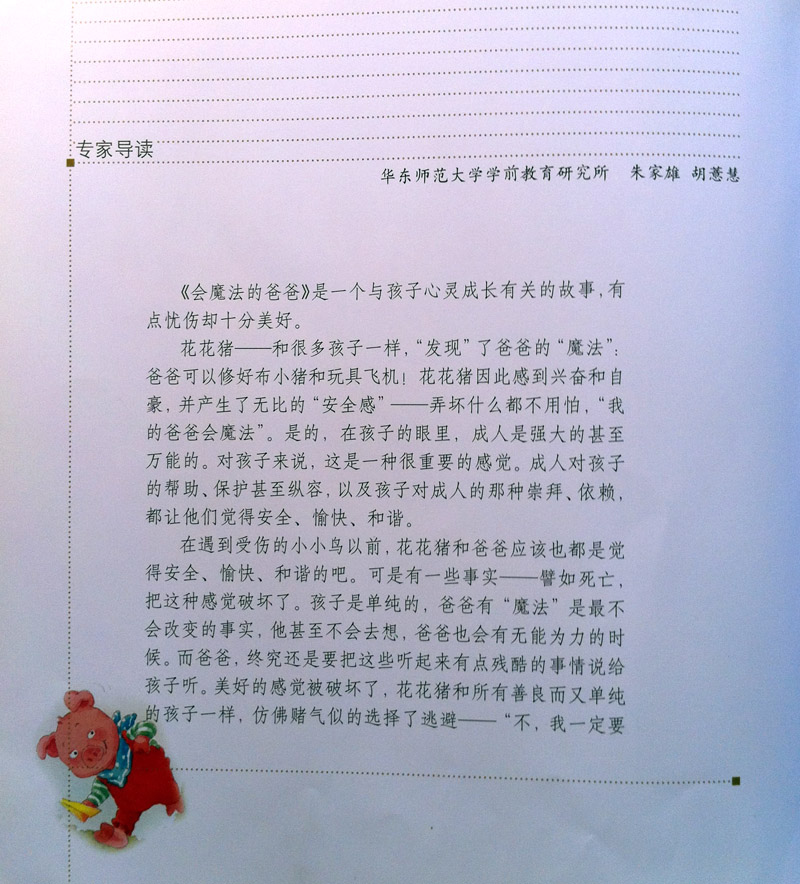 专家导读
华东师范大学学前教育研究所 朱家雄 胡薏慧
《会魔法的爸爸》是一个与孩子心灵成长有关的故事，有
点忧伤却十分美好。
花花猪——和很多孩子一样，“发现”了爸爸的“魔法”：
爸爸可以修好布小猪和玩具飞机！花花猪因此感到兴奋和自
豪，并产生了无比的“安全感”——弄坏什么都不用怕，“我
的爸爸会魔法”。是的，在孩子的眼里，成人是强大的甚至
万能的。对孩子来说，这是一种很重要的感觉。成人对孩子
的帮助、保护甚至纵容，以及孩子对成人的那种崇拜、依赖，
都让他们觉得安全、愉快、和谐。
在遇到受伤的小小鸟以前，花花猪和爸爸应该也都是觉
得安全、愉快、和谐的吧。可是有一些事实——譬如死亡，
把这种感觉破坏了。孩子是单纯的，爸爸有“魔法”是最不
会改变的事实，他甚至不会去想，爸爸也会有无能为力的时
候。而爸爸，终究还是要把这些听起来有点残酷的事情说给
孩子听。美好的感觉被破坏了，花花猪和所有善良而又单纯
的孩子一样，仿佛赌气似的选择了逃避——“不，我一定要